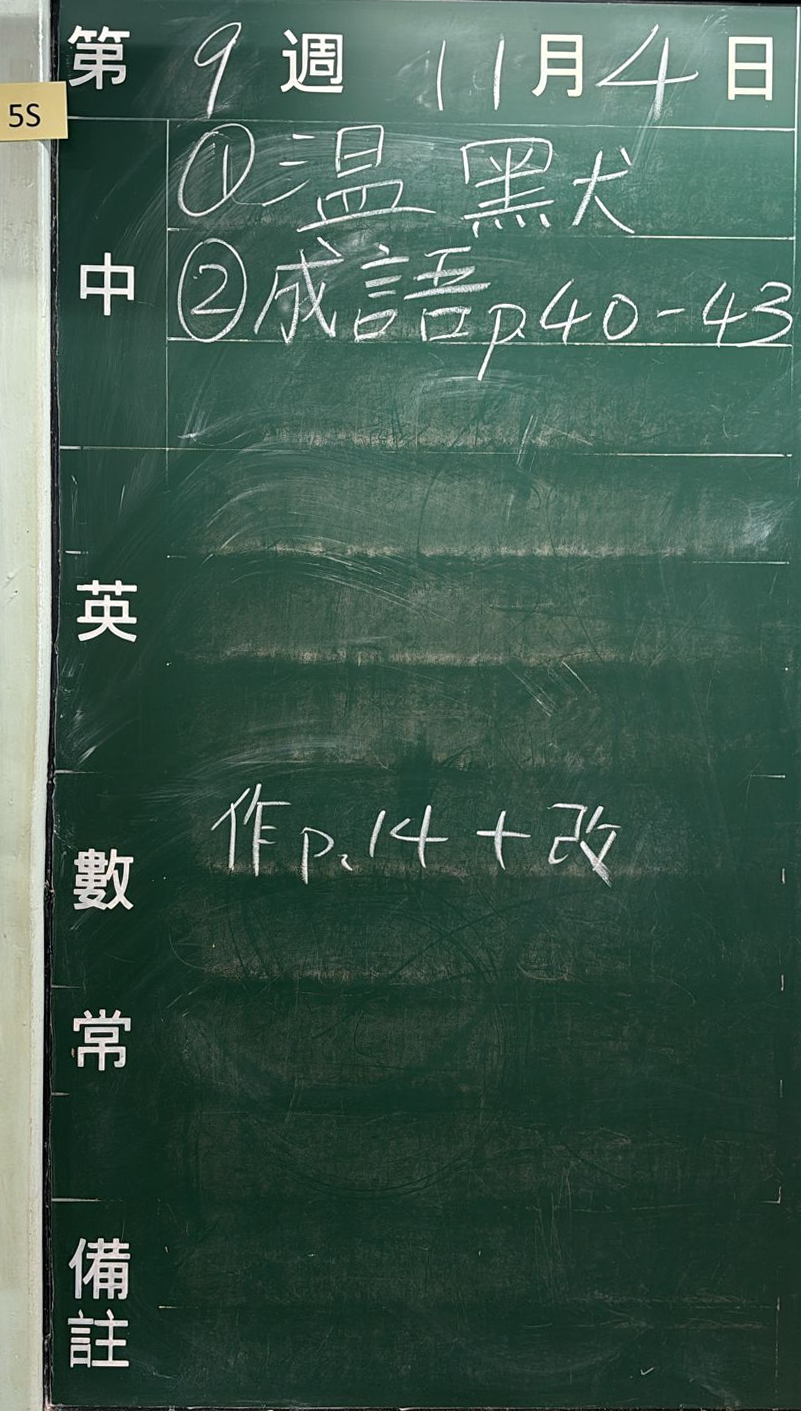 第 9 週 11 月 4 日
5S
中
①温 黑犬
②成語p.40-43
英
數
作p.14 + 改
常
備註